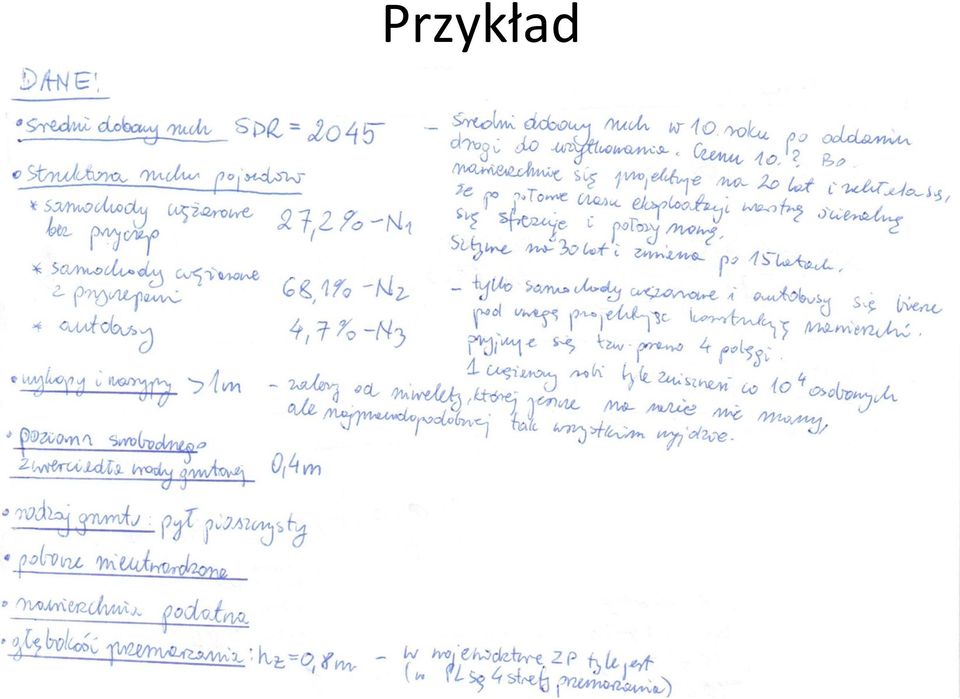 Przykład
DANE!
• średni dobowy ruch SDR = 2045
– średni dobowy ruch w 10. roku po oddaniu
drogi do użytkowania. Czemu 10.? Bo
nawierzchnie się projektuje na 20 lat i zakłada się,
że po połowie czasu eksploatacji warstwę ścieralną
się sfrezuje i położy nową.
Sztywne na 30 lat i zmiana po 15 latach.
• struktura ruchu pojazdów
* samochody ciężarowe
bez przyczep 27,2% – N1
* samochody ciężarowe
z przyczepami 68,1% – N2
* autobusy 4,7% – N3
– tylko samochody ciężarowe i autobusy się bierze
pod uwagę projektując konstrukcję nawierzchni.
przyjmuje się tzw. prawo 4 potęgi.
1 ciężarowy robi tyle zniszczeń co 10⁴ osobowych
• wykopy i nasypy > 1m – zależy od niwelety, której jeszcze na razie nie mamy,
ale najprawdopodobniej tak wszystkim wyjdzie.
• poziom swobodnego
zwierciadła wody gruntowej 0,4m
• rodzaj gruntu: pył piaszczysty
• pobocze nieutwardzone
• nawierzchnia podatna
• głębokość przemarzania: hz = 0,8m – w województwie ZP tyle jest
(w PL są 4 strefy przemarzania)